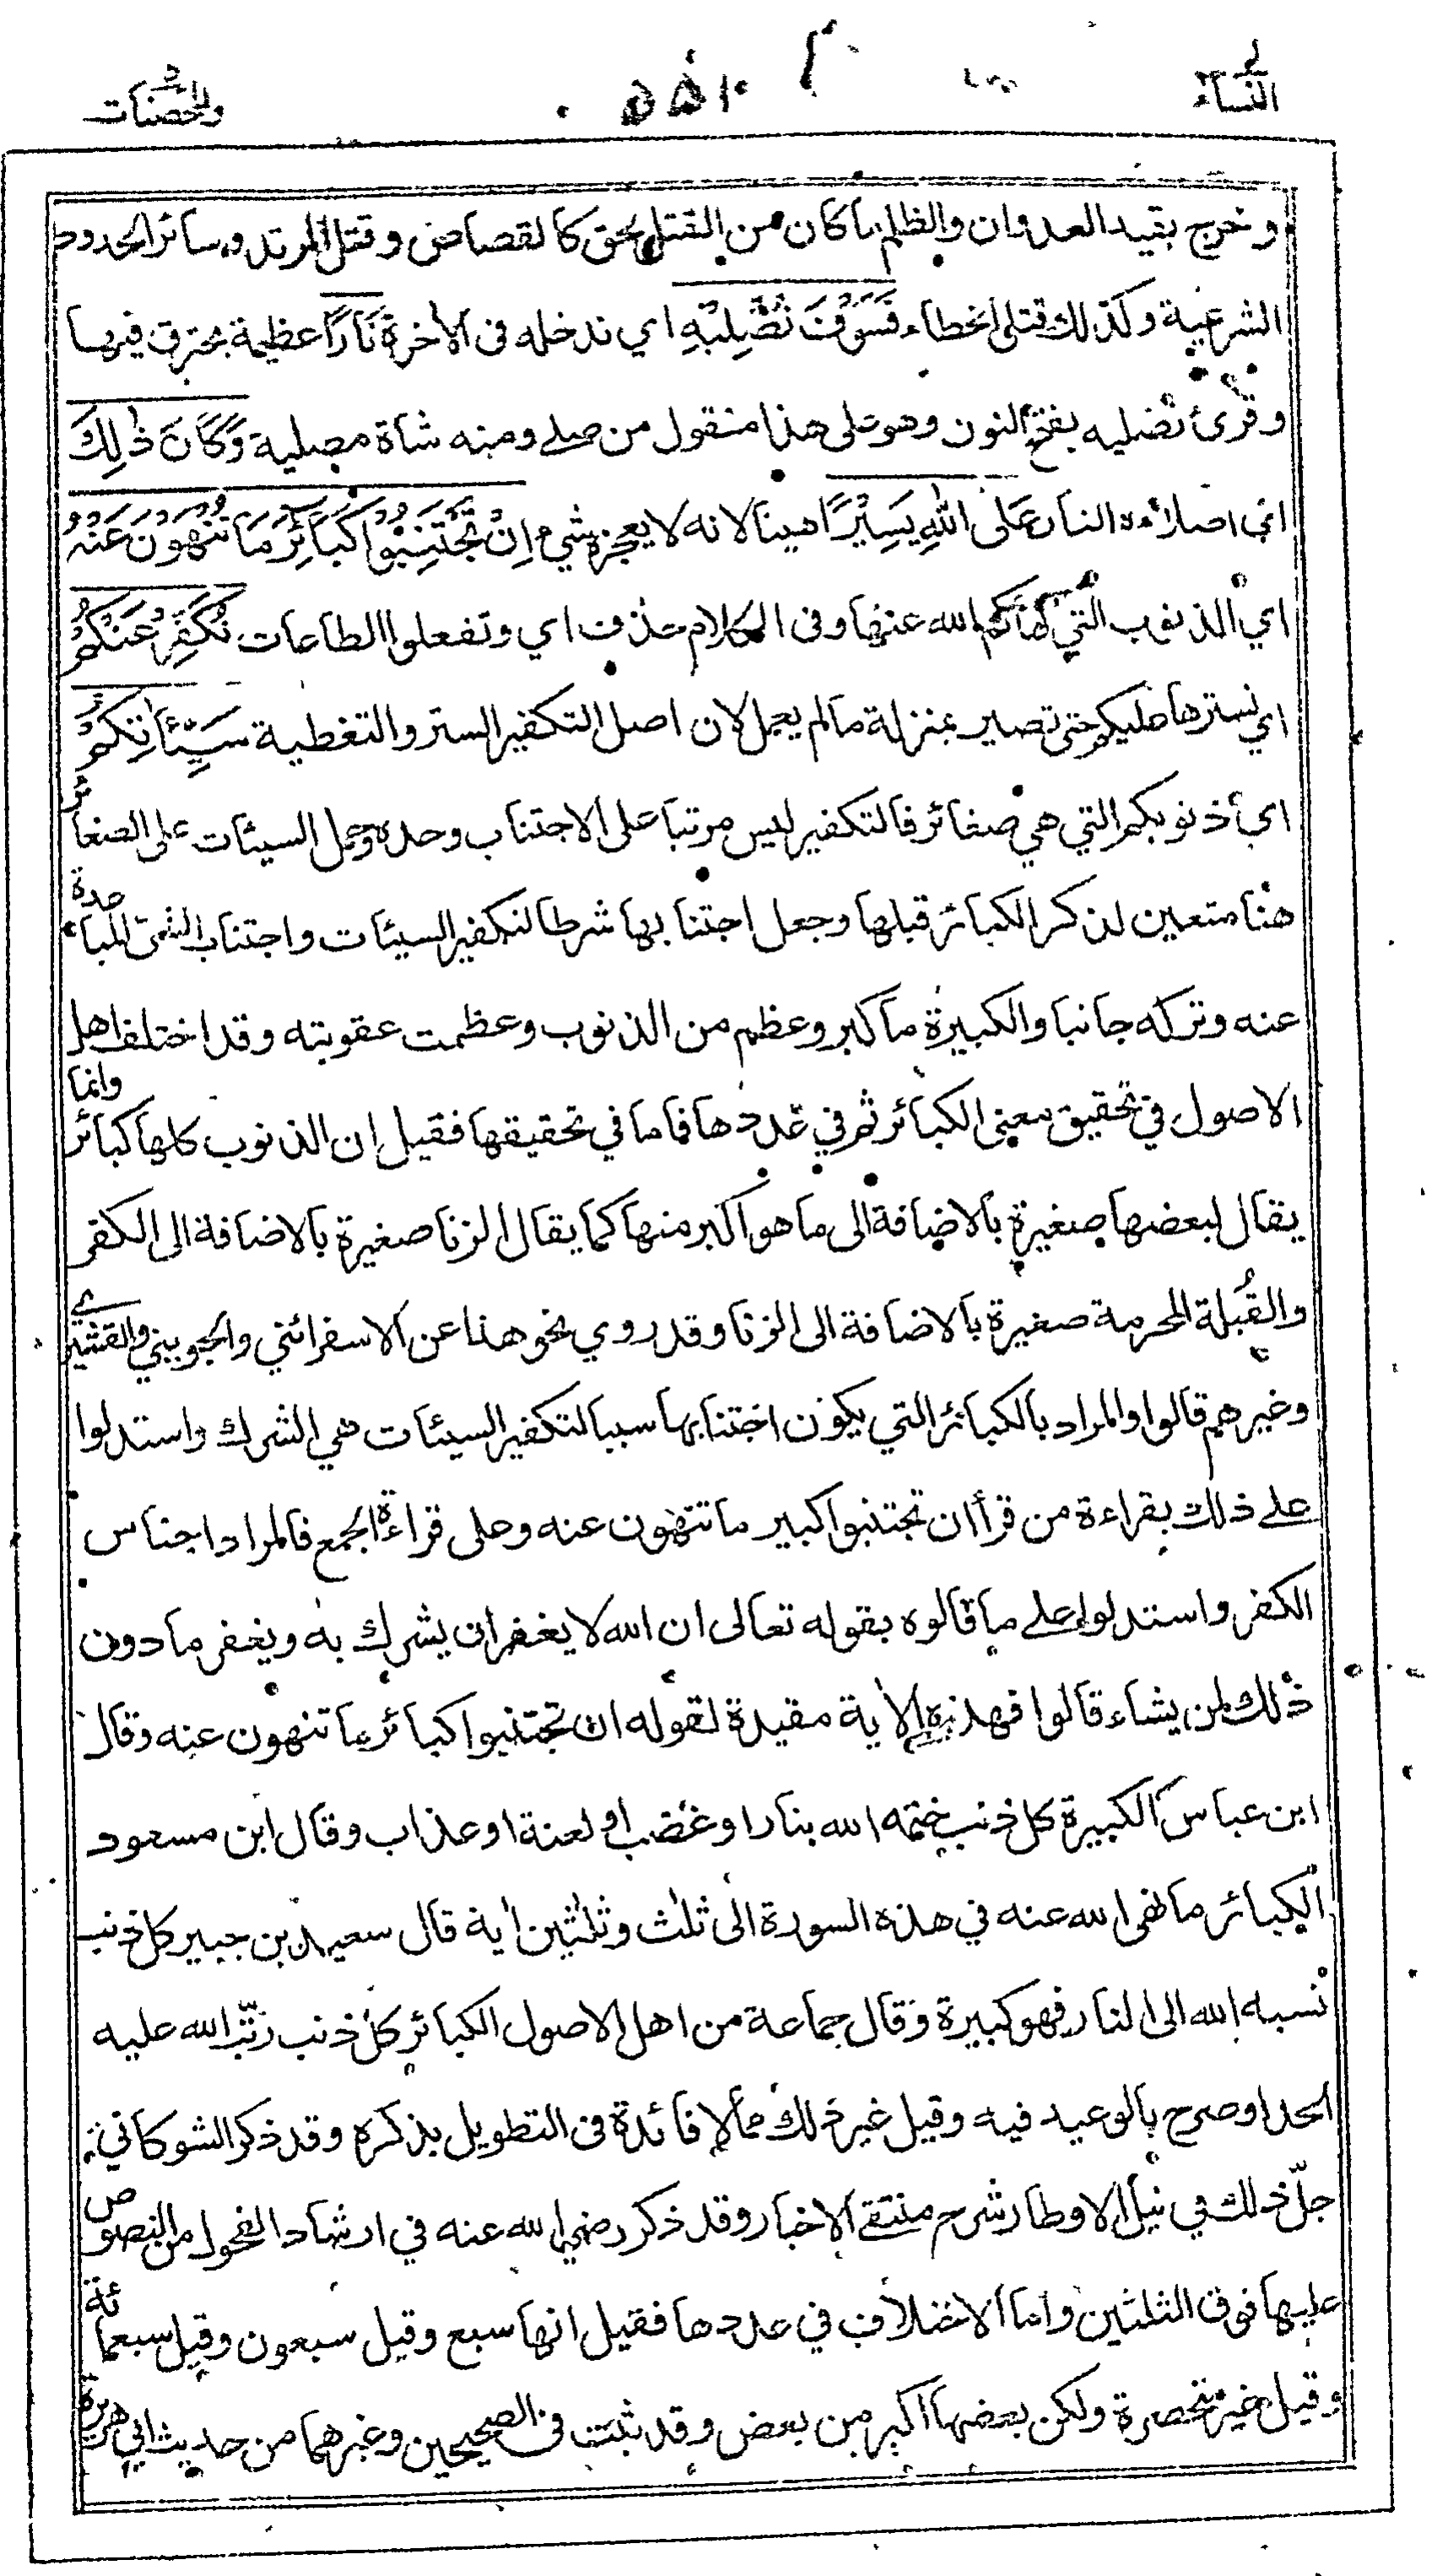 النساء
والمحصنات
وخرج بقيد العدوان والظلم ما كان من القتل بحق كالقصاص وقتل المرتد وسائر الحدود
الشرعية وكذلك قتل الخطاء فَسَوْفَ نُصْلِيْهِ اي ندخله فى الأخرة نَارًا عظيمة يحترق فيها
وقرئ نصليه بفتح النون وهو على هذا منقول من صلے ومنه شاة مصلية وَكَانَ ذٰلِكَ
اي اصلاءه النار عَلَى اللّٰهِ يَسِيْرًا هينا لانه لا يعجزه شيء اِنْ تَجْتَنِبُوْا كَبَائِرَ مَا تُنْهَوْنَ عَنْهُ
اي الذنوب التي نهاكم الله عنها وفى الكلام حذف اي وتفعلوا الطاعات نُكَفِّرْ عَنْكُمْ
اي نسترها عليكم حتى تصير بمنزلة مالم يعمل لان اصل التكفير الستر والتغطية سَيِّئَاتِكُمْ
اي ذنوبكم التي هي صغائر فالتكفير ليس مرتبا على الاجتناب وحده وحمل السيئات على الصغائر
هنا متعين لذكر الكبائر قبلها وجعل اجتنابها شرطا لتكفير السيئات واجتناب الشئ المباعدة
عنه وتركه جانبا والكبيرة ما كبر وعظم من الذنوب وعظمت عقوبته وقد اختلف اهل
الاصول في تحقيق معنى الكبائر ثم في عددها فاما في تحقيقها فقيل ان الذنوب كلها كبائر وانما
يقال لبعضها صغيرة بالاضافة الى ما هو اكبر منها كما يقال الزنا صغيرة بالاضافة الى الكفر
والقُبلة المحرمة صغيرة بالاضافة الى الزنا وقد روي نحو هذا عن الاسفرائني والجويني والقشيري
وغيرهم قالوا والمراد بالكبائر التي يكون اجتنابها سببا لتكفير السيئات هي الشرك واستدلوا
علے ذلك بقراءة من قرأ ان تجتنبوا كبير ما تنهون عنه وعلى قراءة الجمع فالمراد اجناس
الكفر واستدلوا علے ما قالوه بقوله تعالى ان الله لا يغفر ان يشرك به ويغفر ما دون
ذلك لمن يشاء قالوا فهذه الأية مقيدة لقوله ان تجتنبوا كبائر ما تنهون عنه وقال
ابن عباس الكبيرة كل ذنب ختمه الله بنار او غضب او لعنة او عذاب وقال ابن مسعود
الكبائر ما نهى الله عنه في هذه السورة الى ثلث وثلثين أية قال سعيد بن جبير كل ذنب
نسبه الله الى النار فهو كبيرة وقال جماعة من اهل الاصول الكبائر كل ذنب رتّب الله عليه
الحد او صرح بالوعيد فيه وقيل غير ذلك مما لا فائدة فى التطويل بذكره وقد ذكر الشوكاني
جلّ ذلك في نيل الاوطار شرح منتقى الاخبار وقد ذكر رضي الله عنه في ارشاد الفحول من النصوص
عليها فوق الثلثين واما الاختلاف في عددها فقيل انها سبع وقيل سبعون وقيل سبعمائة
وقيل غير منحصرة ولكن بعضها اكبر من بعض وقد ثبت فى الصحيحين وغيرهما من حديث ابي هريرة